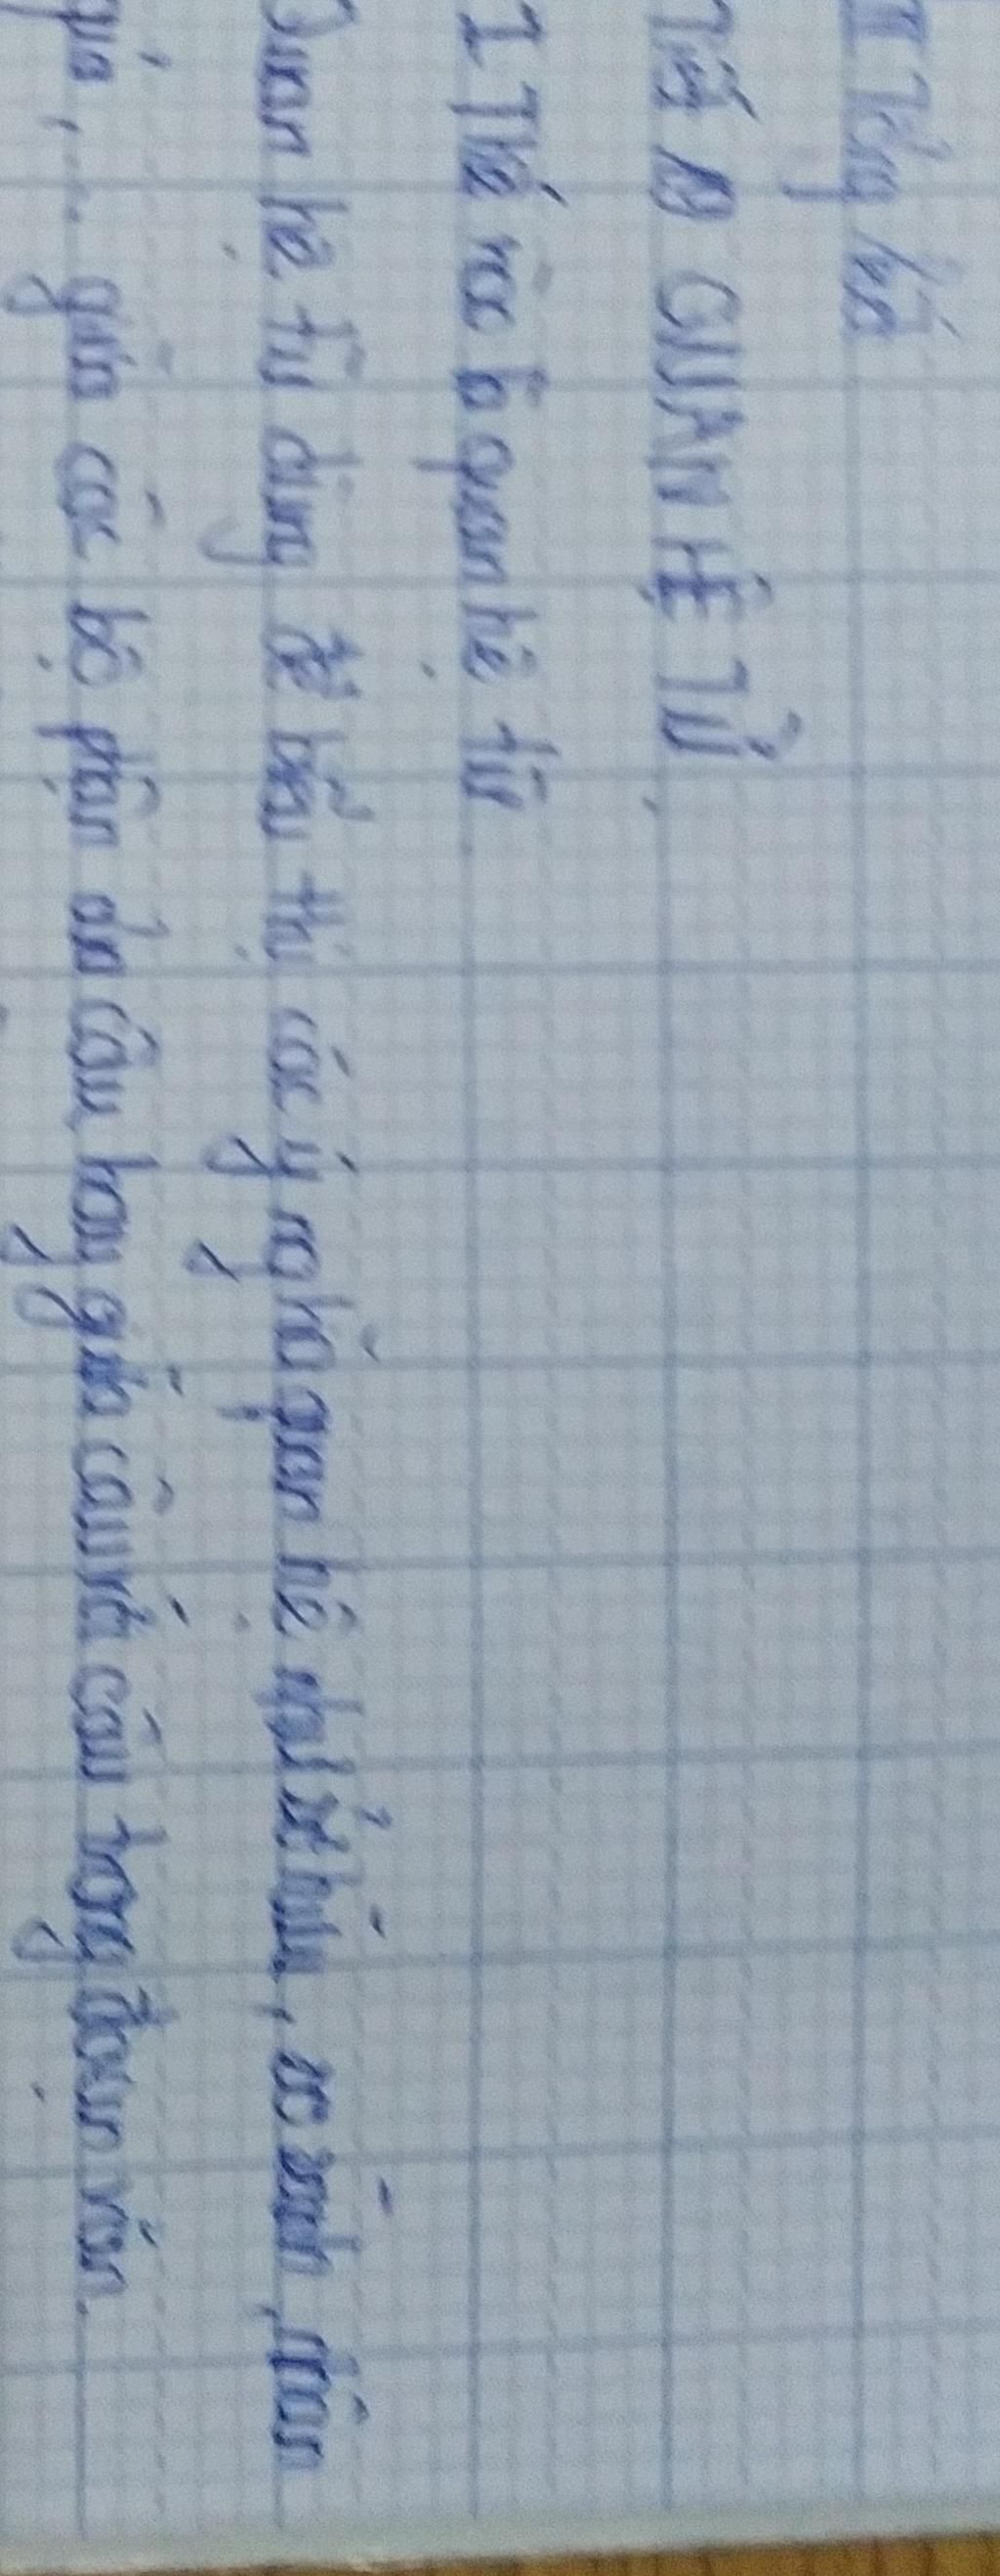 II Tổng kết
Tiết 28 QUAN HỆ TỪ
I Thế nào là quan hệ từ
Quan hệ từ dùng để biểu thị các ý nghĩa quan hệ như sở hữu, so sánh, nhân
quả,.... giữa các bộ phận của câu hay giữa câu với câu trong đoạn văn.